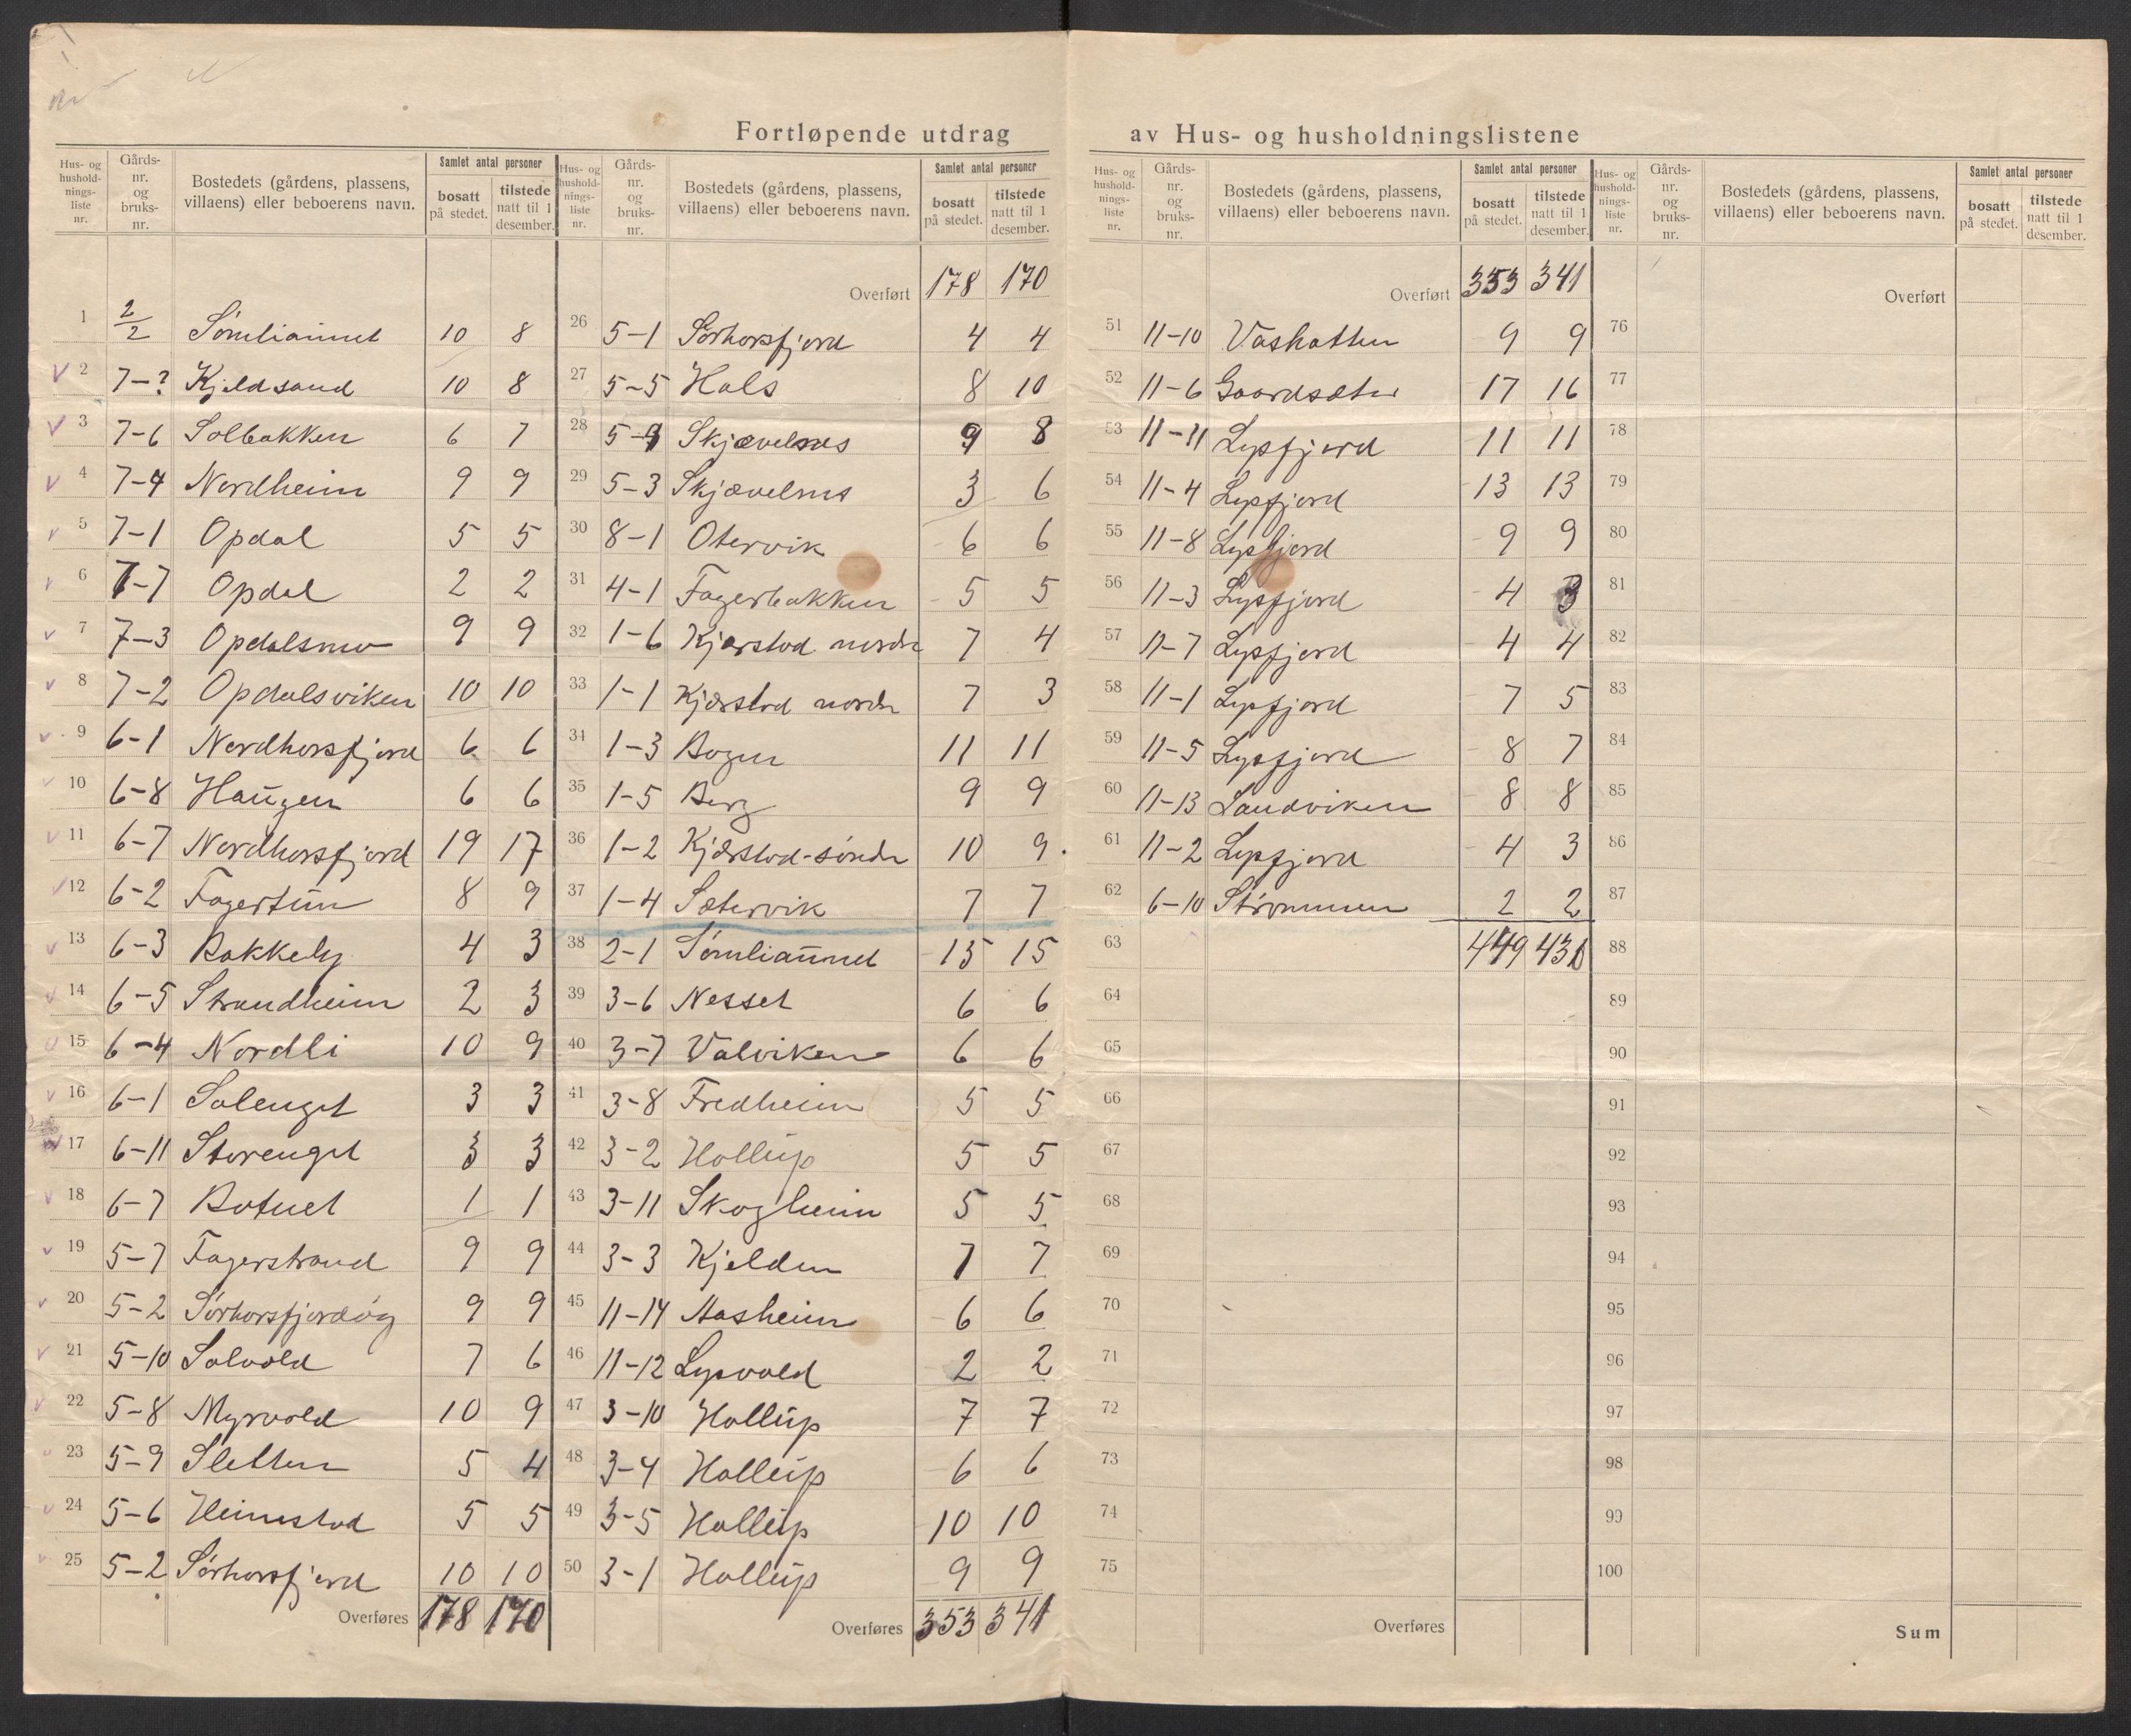 Fortløpende utdrag av Hus- og husholdningslistene
Hus- og hushold-nings-liste nr. Gårds-nr. og bruks-nr. Bostedets (gårdens, plassens, villaens) eller beboerens navn. Samlet antal personer bosatt på stedet. tilstede natt til 1 desember.
1 2/2 Sørmliaunet 10 8
2 7-? Kjeldsand 10 8
3 7-6 Solbakken 6 7
4 7-4 Nordheim 9 9
5 7-1 Opdal 5 5
6 7-7 Opdal 2 2
7 7-3 Opdalsmo 9 9
8 7-2 Opdalsviken 10 10
9 6-1 Nordhorsfjord 6 6
10 6-8 Haugen 6 6
11 6-7 Nordhorsfjord 19 17
12 6-2 Fagertun 8 9
13 6-3 Bakkely 4 3
14 6-5 Strandheim 2 3
15 6-4 Nordli 10 9
16 6-1 Solenget 3 3
17 6-11 Storenget 3 3
18 6-7 Botnet 1 1
19 5-7 Fagerstrand 9 9
20 5-2 Sørhorsfjordøg 9 9
21 5-10 Solvold 7 6
22 5-8 Myrvold 10 9
23 5-9 Sletten 5 4
24 5-6 Heimstad 5 5
25 5-2 Sørhorsfjord 10 10
Overføres 178 170
Hus- og hushold-nings-liste nr. Gårds-nr. og bruks-nr. Bostedets (gårdens, plassens, villaens) eller beboerens navn. Samlet antal personer bosatt på stedet. tilstede natt til 1 desember.
Overført 178 170
26 5-1 Sørhorsfjord 4 4
27 5-5 Hals 8 10
28 5-4 Skjævelnes 9 8
29 5-3 Skjævelnes 3 6
30 8-1 Otervik 6 6
31 4-1 Fagerbakken 5 5
32 1-6 Kjærstad nordre 7 4
33 1-1 Kjærstad nordre 7 3
34 1-3 Bogen 11 11
35 1-5 Berg 9 9
36 1-2 Kjærstad-søndre 10 9
37 1-4 Sætervik 7 7
38 2-1 Sørmliaunet 15 15
39 3-6 Nesset 6 6
40 3-7 Valviken 6 6
41 3-8 Fredheim 5 5
42 3-2 Hollup 5 5
43 3-11 Skogheim 5 5
44 3-3 Kjelden 7 7
45 11-14 Aasheim 6 6
46 11-12 Lysvold 2 2
47 3-10 Hollup 7 7
48 3-4 Hollup 6 6
49 3-5 Hollup 10 10
50 3-1 Hollup 9 9
Overføres 353 341
Hus- og hushold-nings-liste nr. Gårds-nr. og bruks-nr. Bostedets (gårdens, plassens, villaens) eller beboerens navn. Samlet antal personer bosatt på stedet. tilstede natt til 1 desember.
Overført 353 341
51 11-10 Vashatten 9 9
52 11-6 Gaardsæter 17 16
53 11-11 Lysfjord 11 11
54 11-4 Lysfjord 13 13
55 11-8 Lysfjord 9 9
56 11-3 Lysfjord 4 3
57 11-7 Lysfjord 4 4
58 11-1 Lysfjord 7 5
59 11-5 Lysfjord 8 7
60 11-13 Sandviken 8 8
61 11-2 Lysfjord 4 3
62 6-10 Strømmen 2 2
63 449 431
64
65
66
67
68
69
70
71
72
73
74
75
Overføres
Hus- og hushold-nings-liste nr. Gårds-nr. og bruks-nr. Bostedets (gårdens, plassens, villaens) eller beboerens navn. Samlet antal personer bosatt på stedet. tilstede natt til 1 desember.
Overført
76
77
78
79
80
81
82
83
84
85
86
87
88
89
90
91
92
93
94
95
96
97
98
99
100
Sum